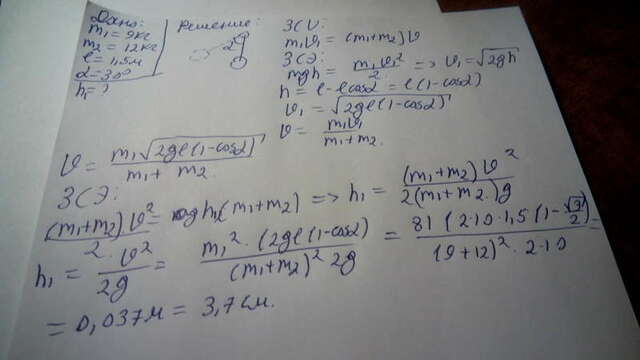 Дано:
m₁ = 9кг
m₂ = 12кг
ℓ = 1,5м
α = 30°
h₁ = ?
Решение:
ЗСИ:
m₁υ₁ = (m₁+m₂)υ
ЗСЭ:
mgh = m₁υ₁²/2 => υ₁ = √2gh
h = ℓ - ℓcosα = ℓ(1-cosα)
υ₁ = √2gℓ(1-cosα)
υ = m₁υ₁/m₁+m₂
υ = m₁√2gℓ(1-cosα)/m₁+m₂
ЗСЭ:
(m₁+m₂)υ²/2 = gh₁(m₁+m₂) => h₁ = (m₁+m₂)υ²/2(m₁+m₂)g
h₁ = υ²/2g = m₁²·(2gℓ(1-cosα)/(m₁+m₂)²2g = 81(2·10·1,5(1-√3/2)/(9+12)²·2·10 =
= 0,037м = 3,7см.